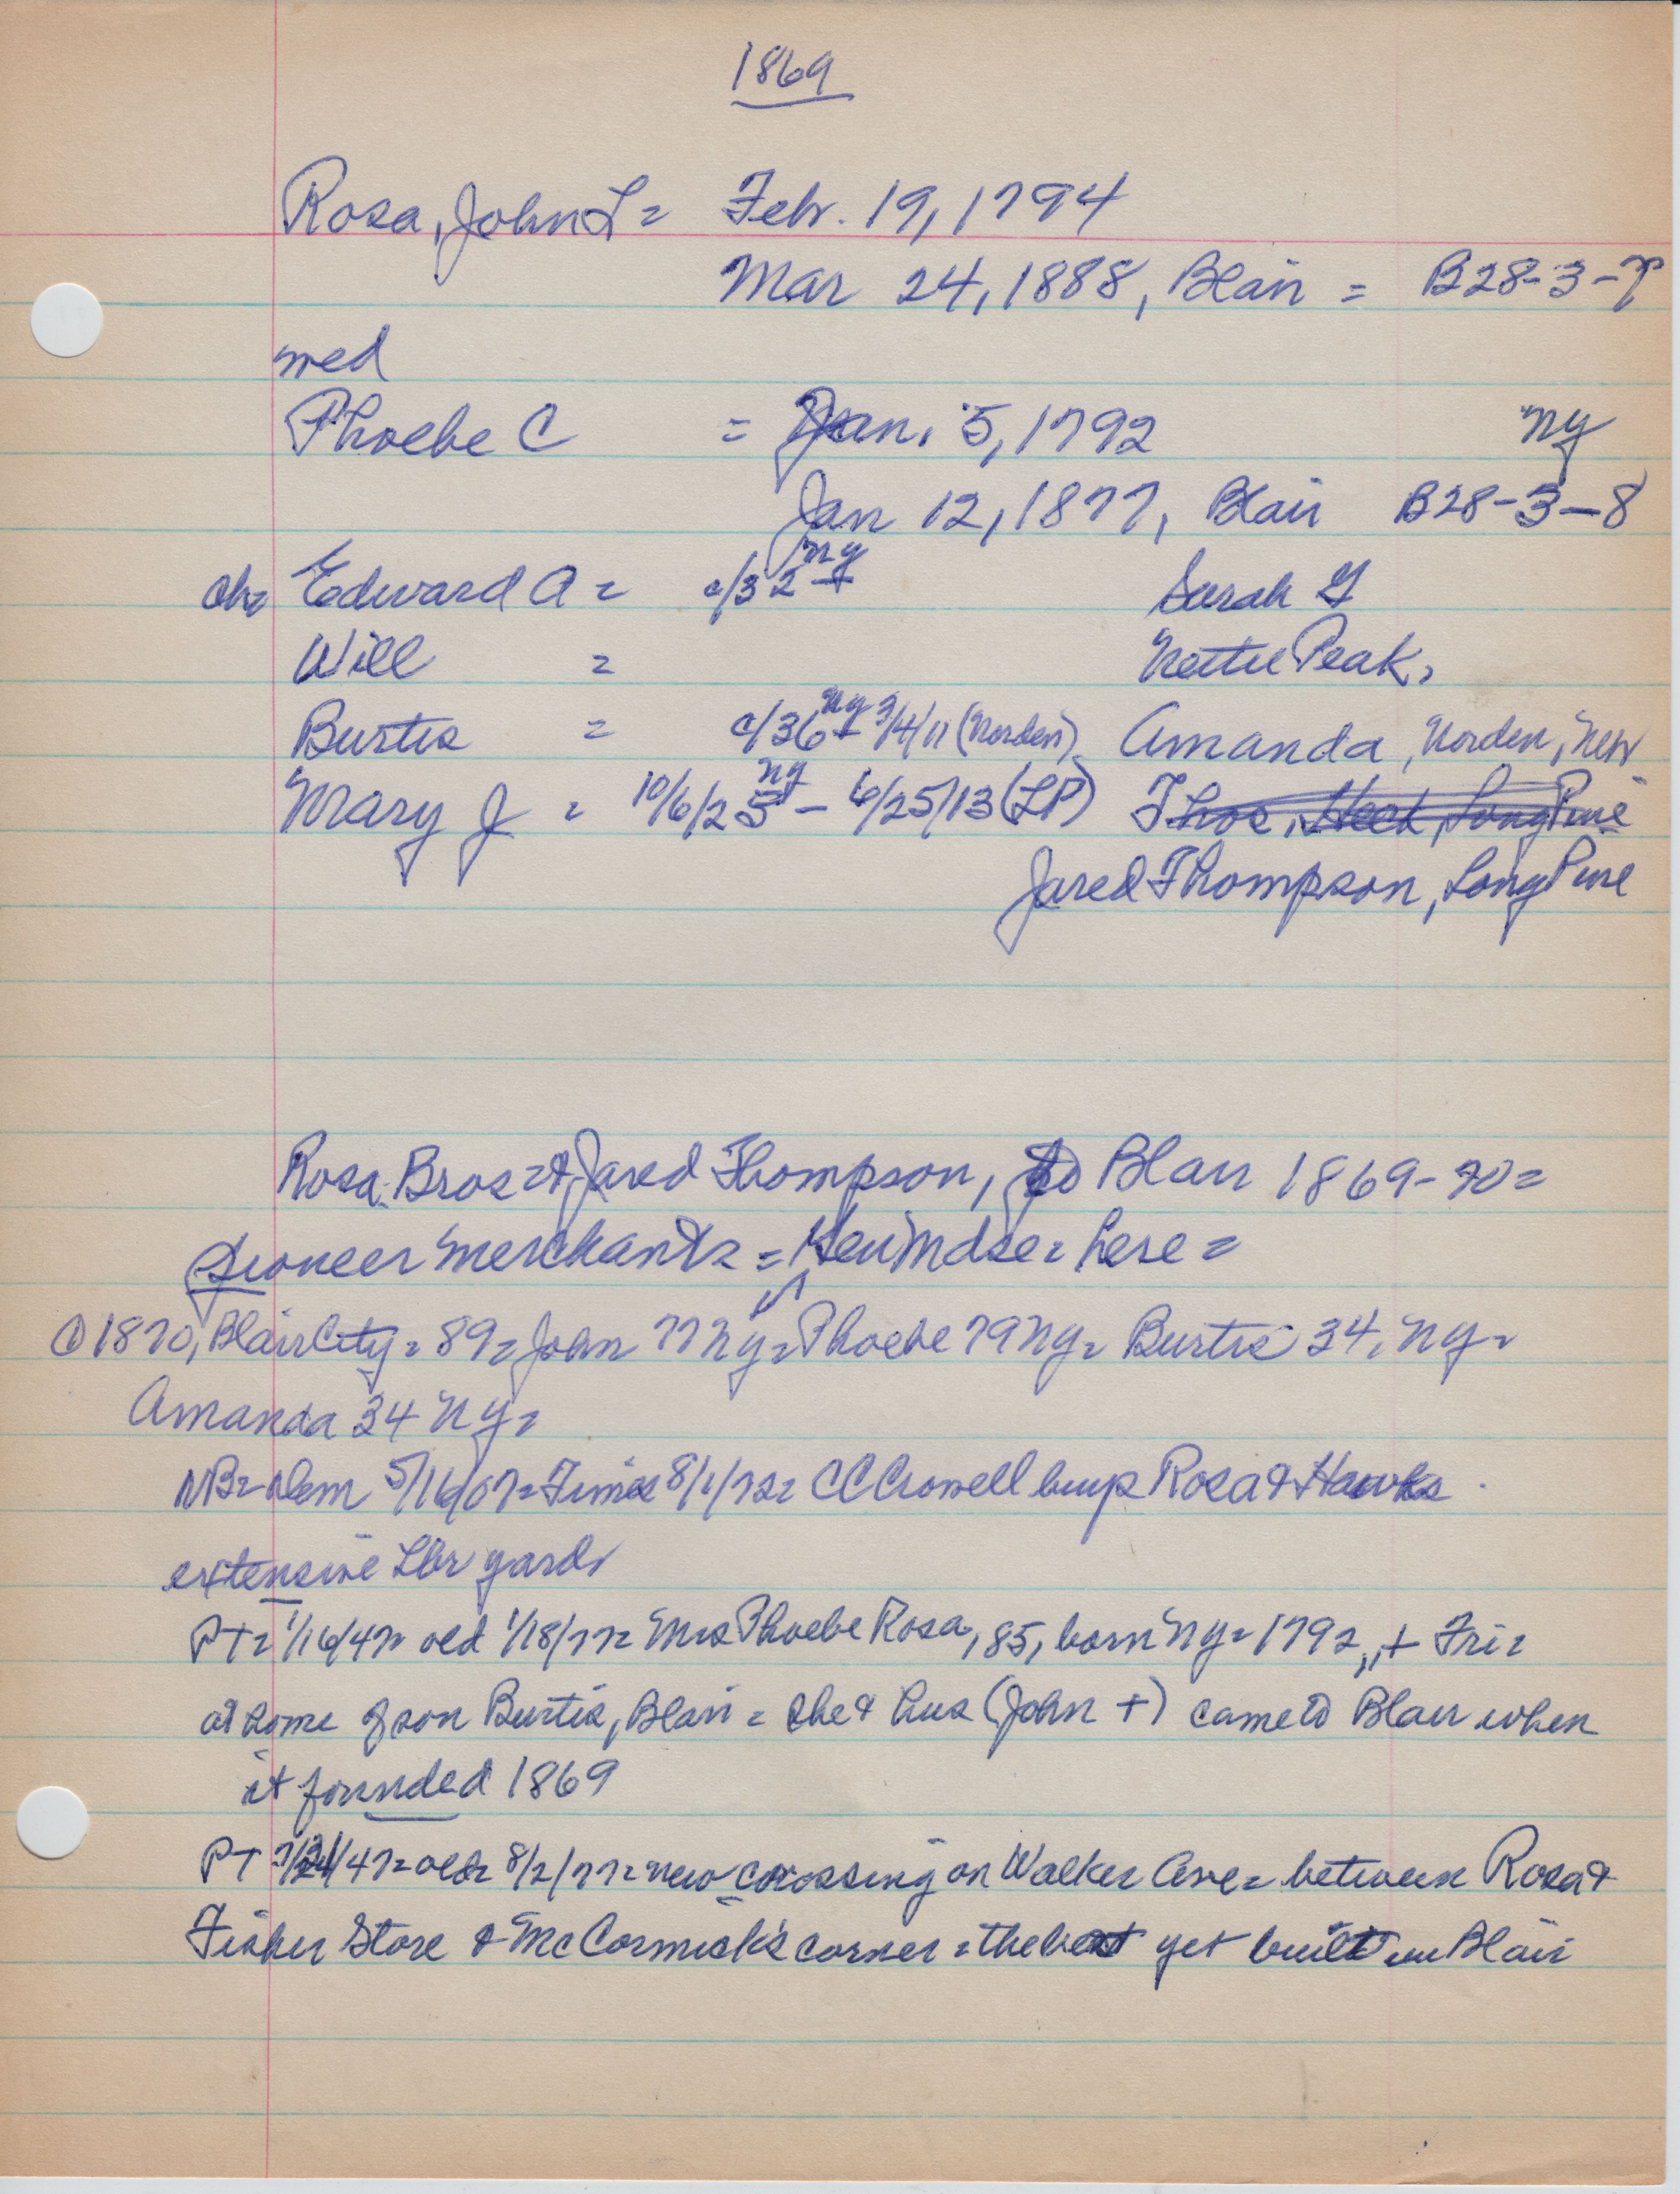 1869
Rosa, John L = Febr. 19, 1794
Mar 24, 1888, Blair = B28-3-7
med
Phoebe C = Jan. 5, 1792 NY
Jan 12, 1877, Blair B28-3-8
ch= Edward A = c/32 NY Sarah G
Will = Nettie Peak,
Burtis = c/36 NY 3/4/11 (Norden) Amanda, Norden, Neb
Mary J = 10/6/25 NY - 6/25/13 (LP) Thos, Heck, Long Pine
Jared Thompson, Long Pine
Rosa Bros = & Jared Thompson, to Blair 1869-70 =
pioneer merchants = Gen Mdse = here =
1870, Blair City = 89 = John 77 NY = Phoebe 79 NY = Burtis 34, NY =
Amanda 34 NY =
NB = Dem 5/16/07 = Times 8/1/72 = CC Crowell buys Rosa & Hawks
extensive Lbr yards
PT = 1/16/47 = old 1/18/77 = Mrs Phoebe Rosa, 85, born NY = 1792,, + Fri =
at home of son Burtis, Blair = she & hus (John +) came to Blair when
it founded 1869
PT 7/31/47 = old = 8/2/77 = new crossing on Walker Ave = between Rosa &
Fisher Store & McCormick's corner = the best yet built in Blair